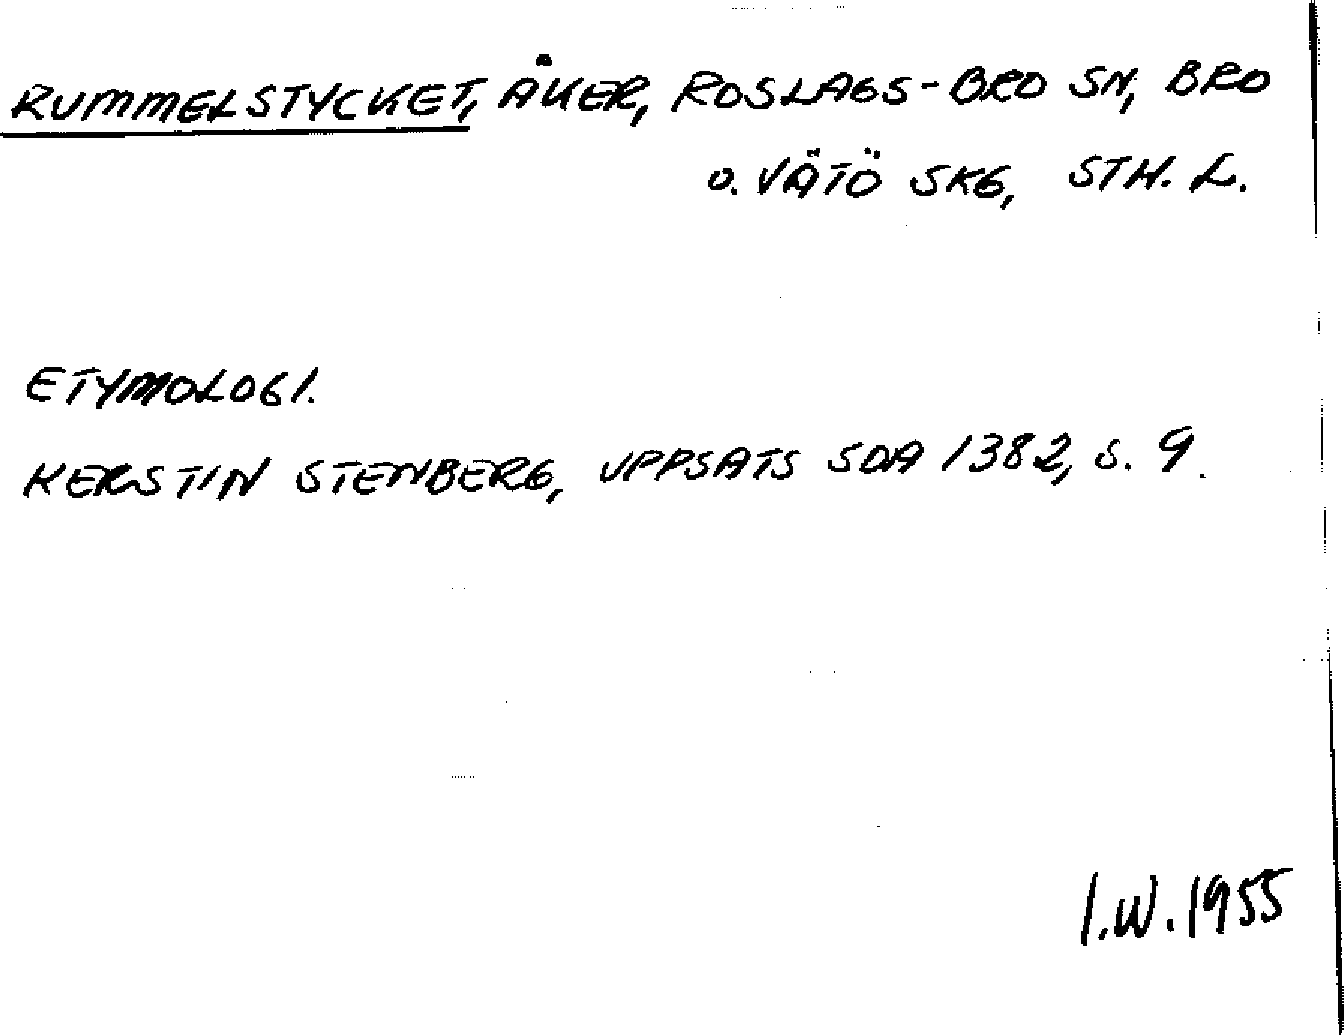 RUMMELSTYCKET, ÅKER, ROSLAGS-BRO SN, BRO
O. VÄTÖ SKG, STH. L.
ETYMOLOGI.
KERSTIN STENBERG, UPPSATS SOA 1382, S. 9.
I.W. 1955